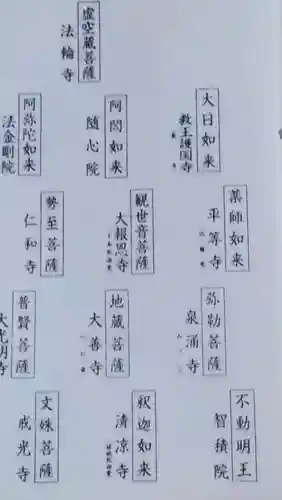 虚空蔵菩薩
法輪寺
大日如来
教王護国寺
阿閦如来
随心院
阿弥陀如来
法金剛院
薬師如来
平等寺
観世音菩薩
大報恩寺
勢至菩薩
仁和寺
弥勒菩薩
泉涌寺
地蔵菩薩
大善寺
普賢菩薩
大光明寺
不動明王
智積院
釈迦如来
清凉寺
文殊菩薩
戒光寺